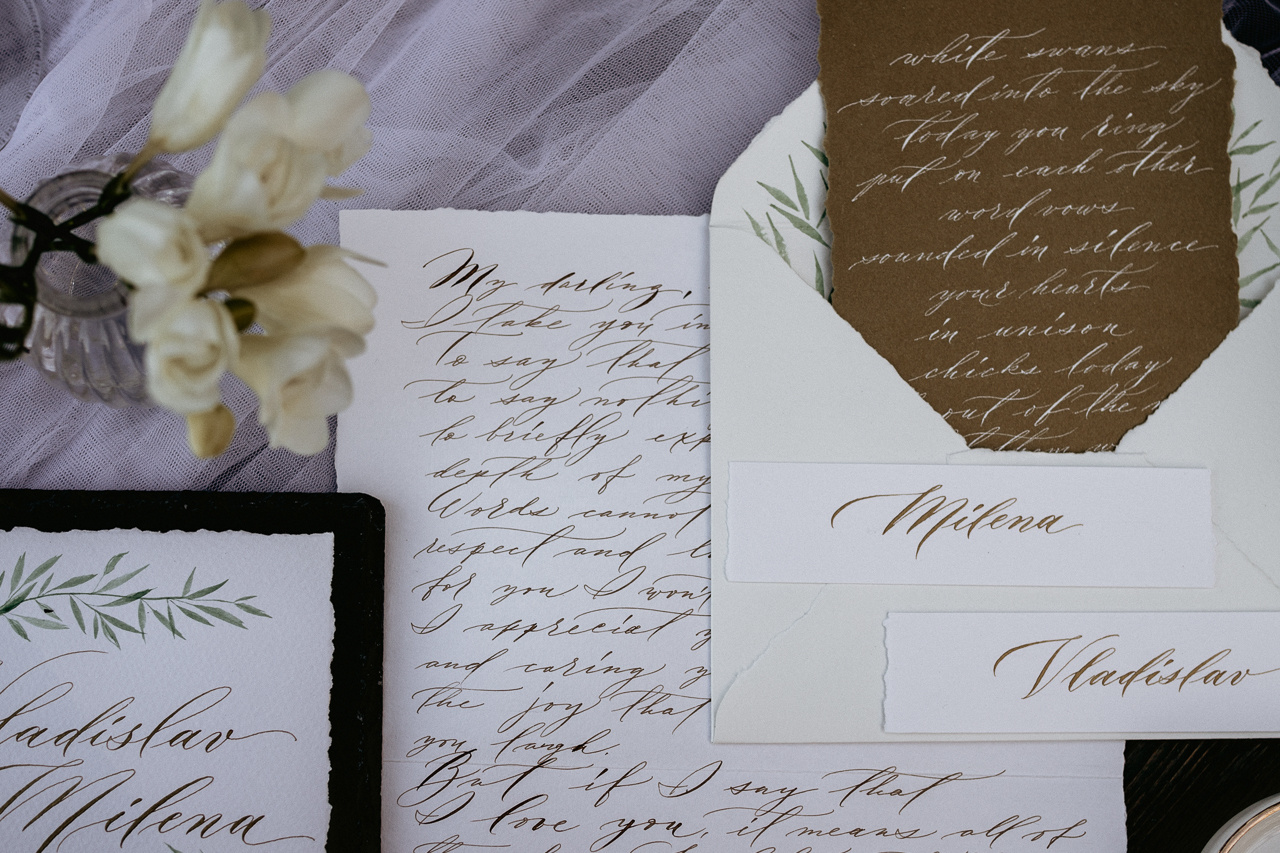 white swans
soared into the sky
today you ring
put on each other
word vows
sounded in silence
your hearts
in unison
chicks today
out of the
My darling,
I take you in
To say that
to say nothi
to briefly exp
depth of my
Words cannot
respect and
for you I won't
I appreciat
and caring y
the joy that
you laugh.
But if I say that
I love you, it means all of
Milena
Vladislav
ladislav
Milena